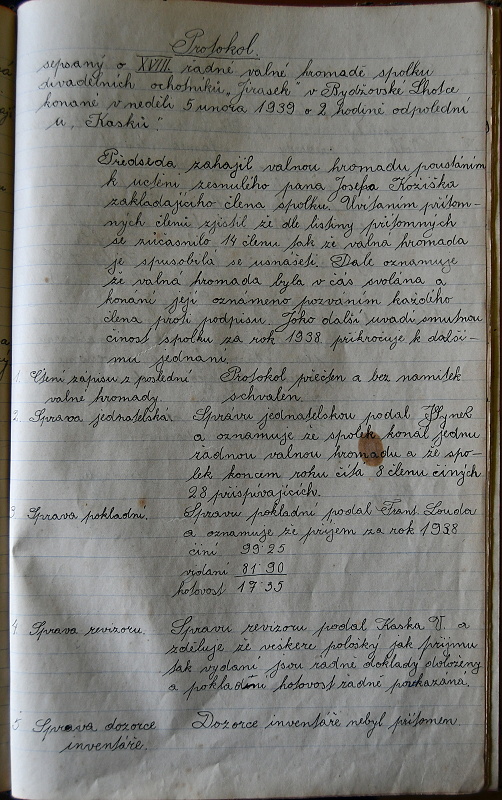 Protokol.
sepsaný o XVIII. řadné valné hromadě spolku
divadelních ochotníků „Jirasek" v Bydžovské Lhotce
konané v neděli 5 unora 1939 o 2. hodině odpolední
u „Kasků".
Předseda zahajil valnou hromadu povstáním
k uctění zesnulého pana Josefa Kozíška
zakládajicího člena spolku. Uvítaním přítom-
ných členů zjistil že dle listiny přítomných
se súčasnilo 14 členu tak že valná hromada
je spusobilá se usnášeti. Dale oznamuje
že valná hromada byla v čás svolána a
konání její oznámeno pozváním každého
člena proti podpisu. Joko další uvadí smutnou
činost spolku za rok 1938. přikročuje k další-
mu jednaní.
1. Čtení zápisu z poslední Protokol přečten a bez namitek
valné hromady. schválen.
2. Sprava jednatelská. Správu jednatelskou podal Hynek
a oznamuje že spolek konál jednu
řádnou valnou hromadu a že spo-
lek koncem roku čítá 8 členu činých
28 přispuvajicich.
3. Sprava pokladní. Spravu pokladní podal Frant. Louda
a oznamuje že příjem za rok 1938
činí 99·25
vydaní 81·90
hotovost 17·35
4. Sprava revizoru. Spravu revizoru podal Kaska V. a
zděluje že veškere položky jak příjmu
tak vydaní jsou řadné doklady doloženy
a pokladní hotovost řadně poukazána.
5. Sprava dozorce Dozorce inventáře nebyl přítomen.
inventáře.